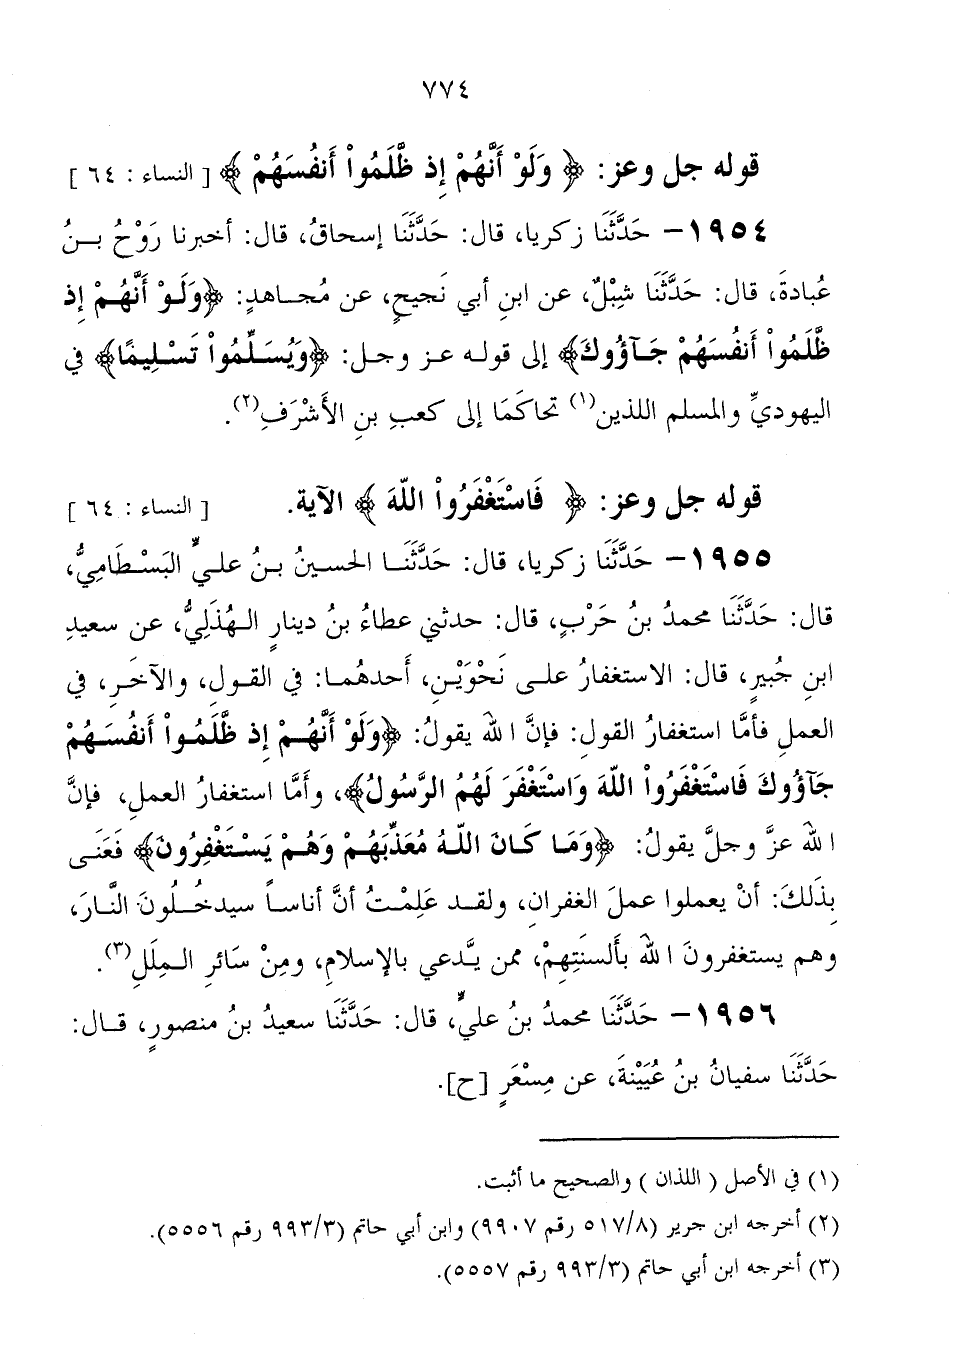 ٧٧٤
قوله جل وعز: ﴿ وَلَوْ أَنَّهُمْ إِذ ظَّلَمُواْ أَنفُسَهُمْ ﴾ [ النساء : ٦٤ ]
١٩٥٤- حَدَّثَنَا زكريا، قال: حَدَّثَنَا إسحاقُ، قال: أخبرنا رَوْحُ بـنُ
عُبادةَ، قال: حَدَّثَنَا شِبْلٌ، عن ابنِ أبي نَجيحٍ، عن مُجـاهدٍ: ﴿وَلَـوْ أَنَّهُـمْ إِذ
ظَّلَمُواْ أَنفُسَهُمْ جَـآؤُوكَ﴾ إلى قولـه عـز وجـل: ﴿وَيُسَـلِّمُواْ تَسْـلِيمًا﴾ في
اليهوديِّ والمسلم اللذين(١) تحاكَمَا إلى كعبِ بنِ الأَشْرَفِ(٢).
قوله جل وعز: ﴿ فَاسْتَغْفَرُواْ اللّهَ ﴾ الآية. [ النساء : ٦٤ ]
١٩٥٥- حَدَّثَنَا زكريا، قال: حَدَّثَنَـا الحسـينُ بـنُ علـيٍّ البَسْـطَامِيُّ،
قال: حَدَّثَنَا محمدُ بنُ حَرْبٍ، قال: حدثني عطاءُ بنُ دينارٍ الـهُذَلِيُّ، عن سعيدِ
ابنِ جُبيرٍ، قال: الاستغفارُ علـى نَحْوَيْـنِ، أحدهُمـا: في القـولِ، والآخَـرِ، في
العملِ فأمَّا استغفارُ القولِ: فإنَّ الله يقولُ: ﴿وَلَوْ أَنَّهُـمْ إِذ ظَّلَمُـواْ أَنفُسَـهُمْ
جَآؤُوكَ فَاسْتَغْفَرُواْ اللّهَ وَاسْتَغْفَرَ لَهُمُ الرَّسُولُ﴾، وأمَّا استغفارُ العملِ، فإنَّ
الله عزَّ وجلَّ يقولُ: ﴿وَمَـا كَـانَ اللّـهُ مُعَذِّبَهُـمْ وَهُـمْ يَسْـتَغْفِرُونَ﴾ فَعَنَـى
بِذَلكَ: أنْ يعملوا عملَ الغفرانِ، ولقـد عَلِمْـتُ أنَّ أناسـاً سيدخُـلُونَ النَّـارَ،
وهم يستغفرونَ الله بأَلسنَتِهِمْ، ممن يـدَّعي بالإسلامِ، ومِنْ سَائرِ الـمِلَلِ(٣).
١٩٥٦- حَدَّثَنَا محمدُ بنُ عليٍّ، قال: حَدَّثَنَا سعيدُ بنُ منصورٍ، قـال:
حَدَّثَنَا سفيانُ بنُ عُيَيْنةَ، عن مِسْعَرٍ [ح].
(١) في الأصل ( اللذان ) والصحيح ما أثبت.
(٢) أخرجه ابن جرير (٥١٧/٨ رقم ٩٩٠٧) وابن أبي حاتم (٩٩٣/٣ رقم ٥٥٥٦).
(٣) أخرجه ابن أبي حاتم (٩٩٣/٣ رقم ٥٥٥٧).